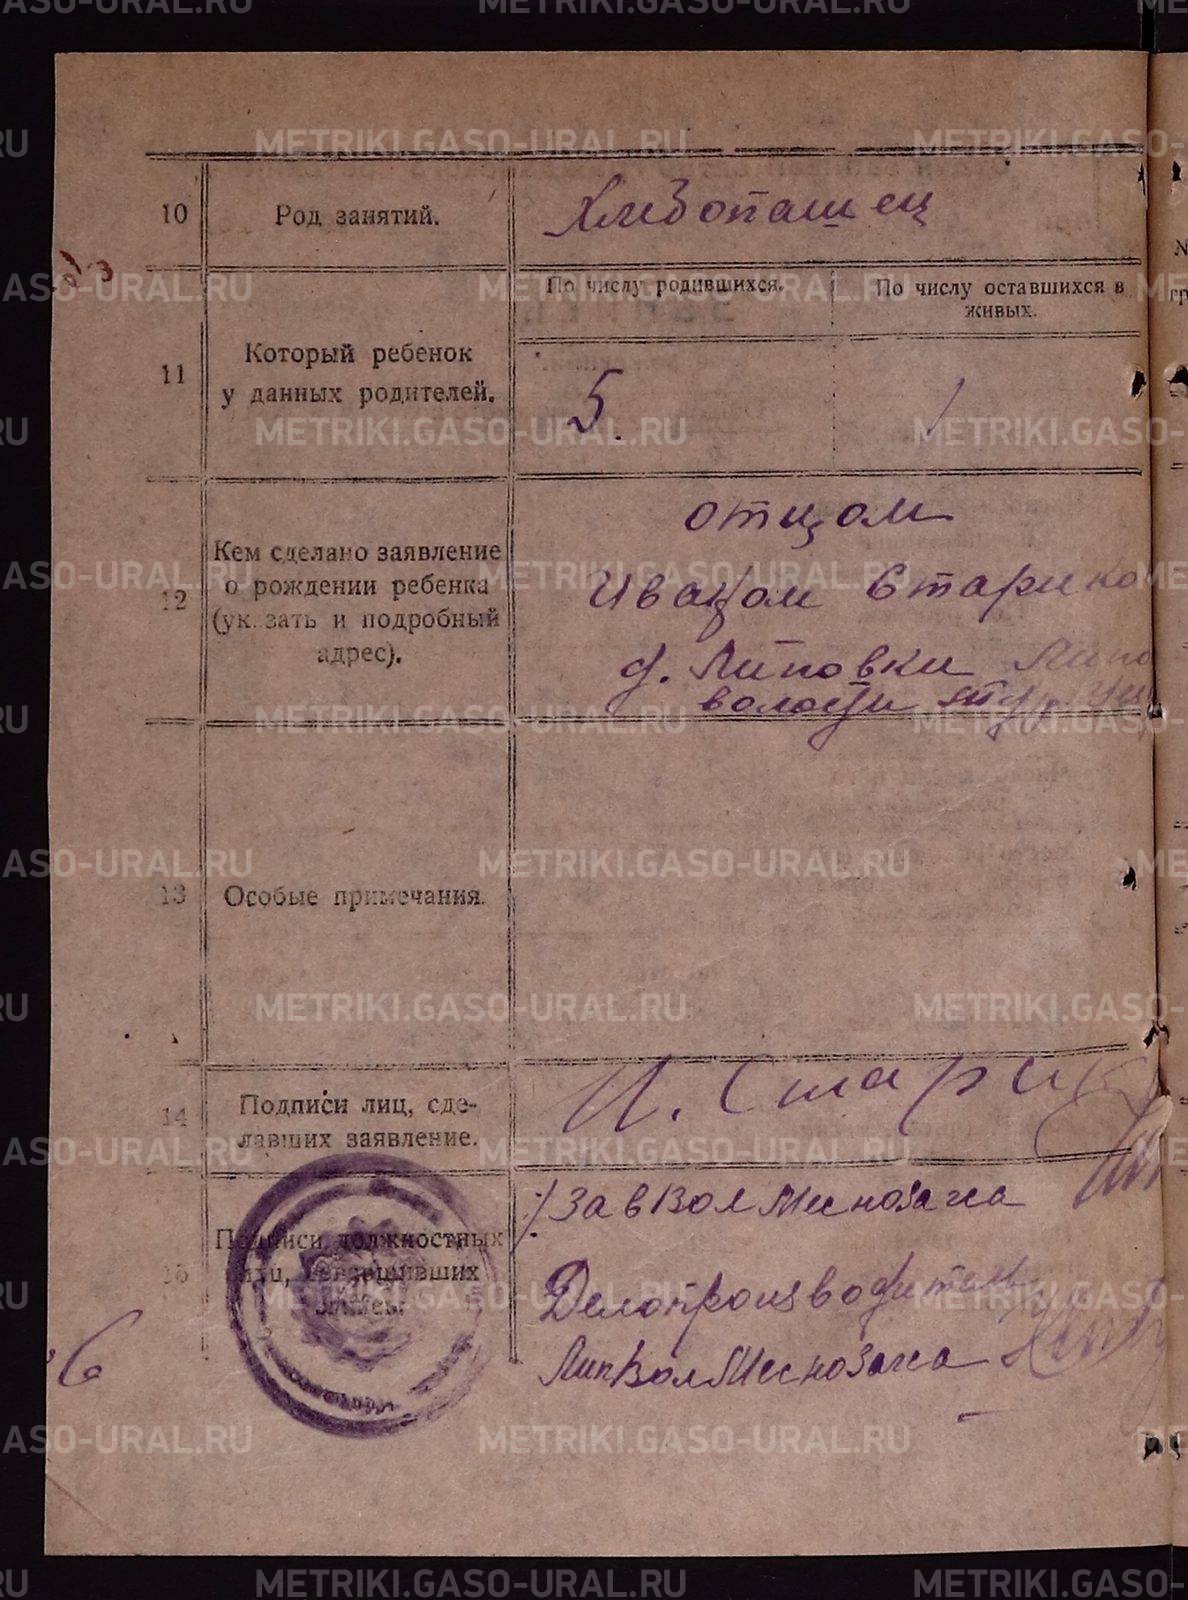 METRIKI.GASO-URAL.RU
10
Род занятий.
Хлебопашец
11
Который ребенок
у данных родителей.
По числу родившихся.
По числу оставшихся в
живых.
5.
1
12
Кем сделано заявление
о рождении ребенка
(ук. зать и подробный
адрес).
отцом
Иваном Старико
д. Липовки Липо
волости
13
Особые примечания.
14
Подписи лиц, сде-
лавших заявление.
И. Старик
15
Подписи должностных
лиц, совершивших
запись.
ЗавВолМеснозагса
Делопроизводитель
ЛипВолМеснозагса
6